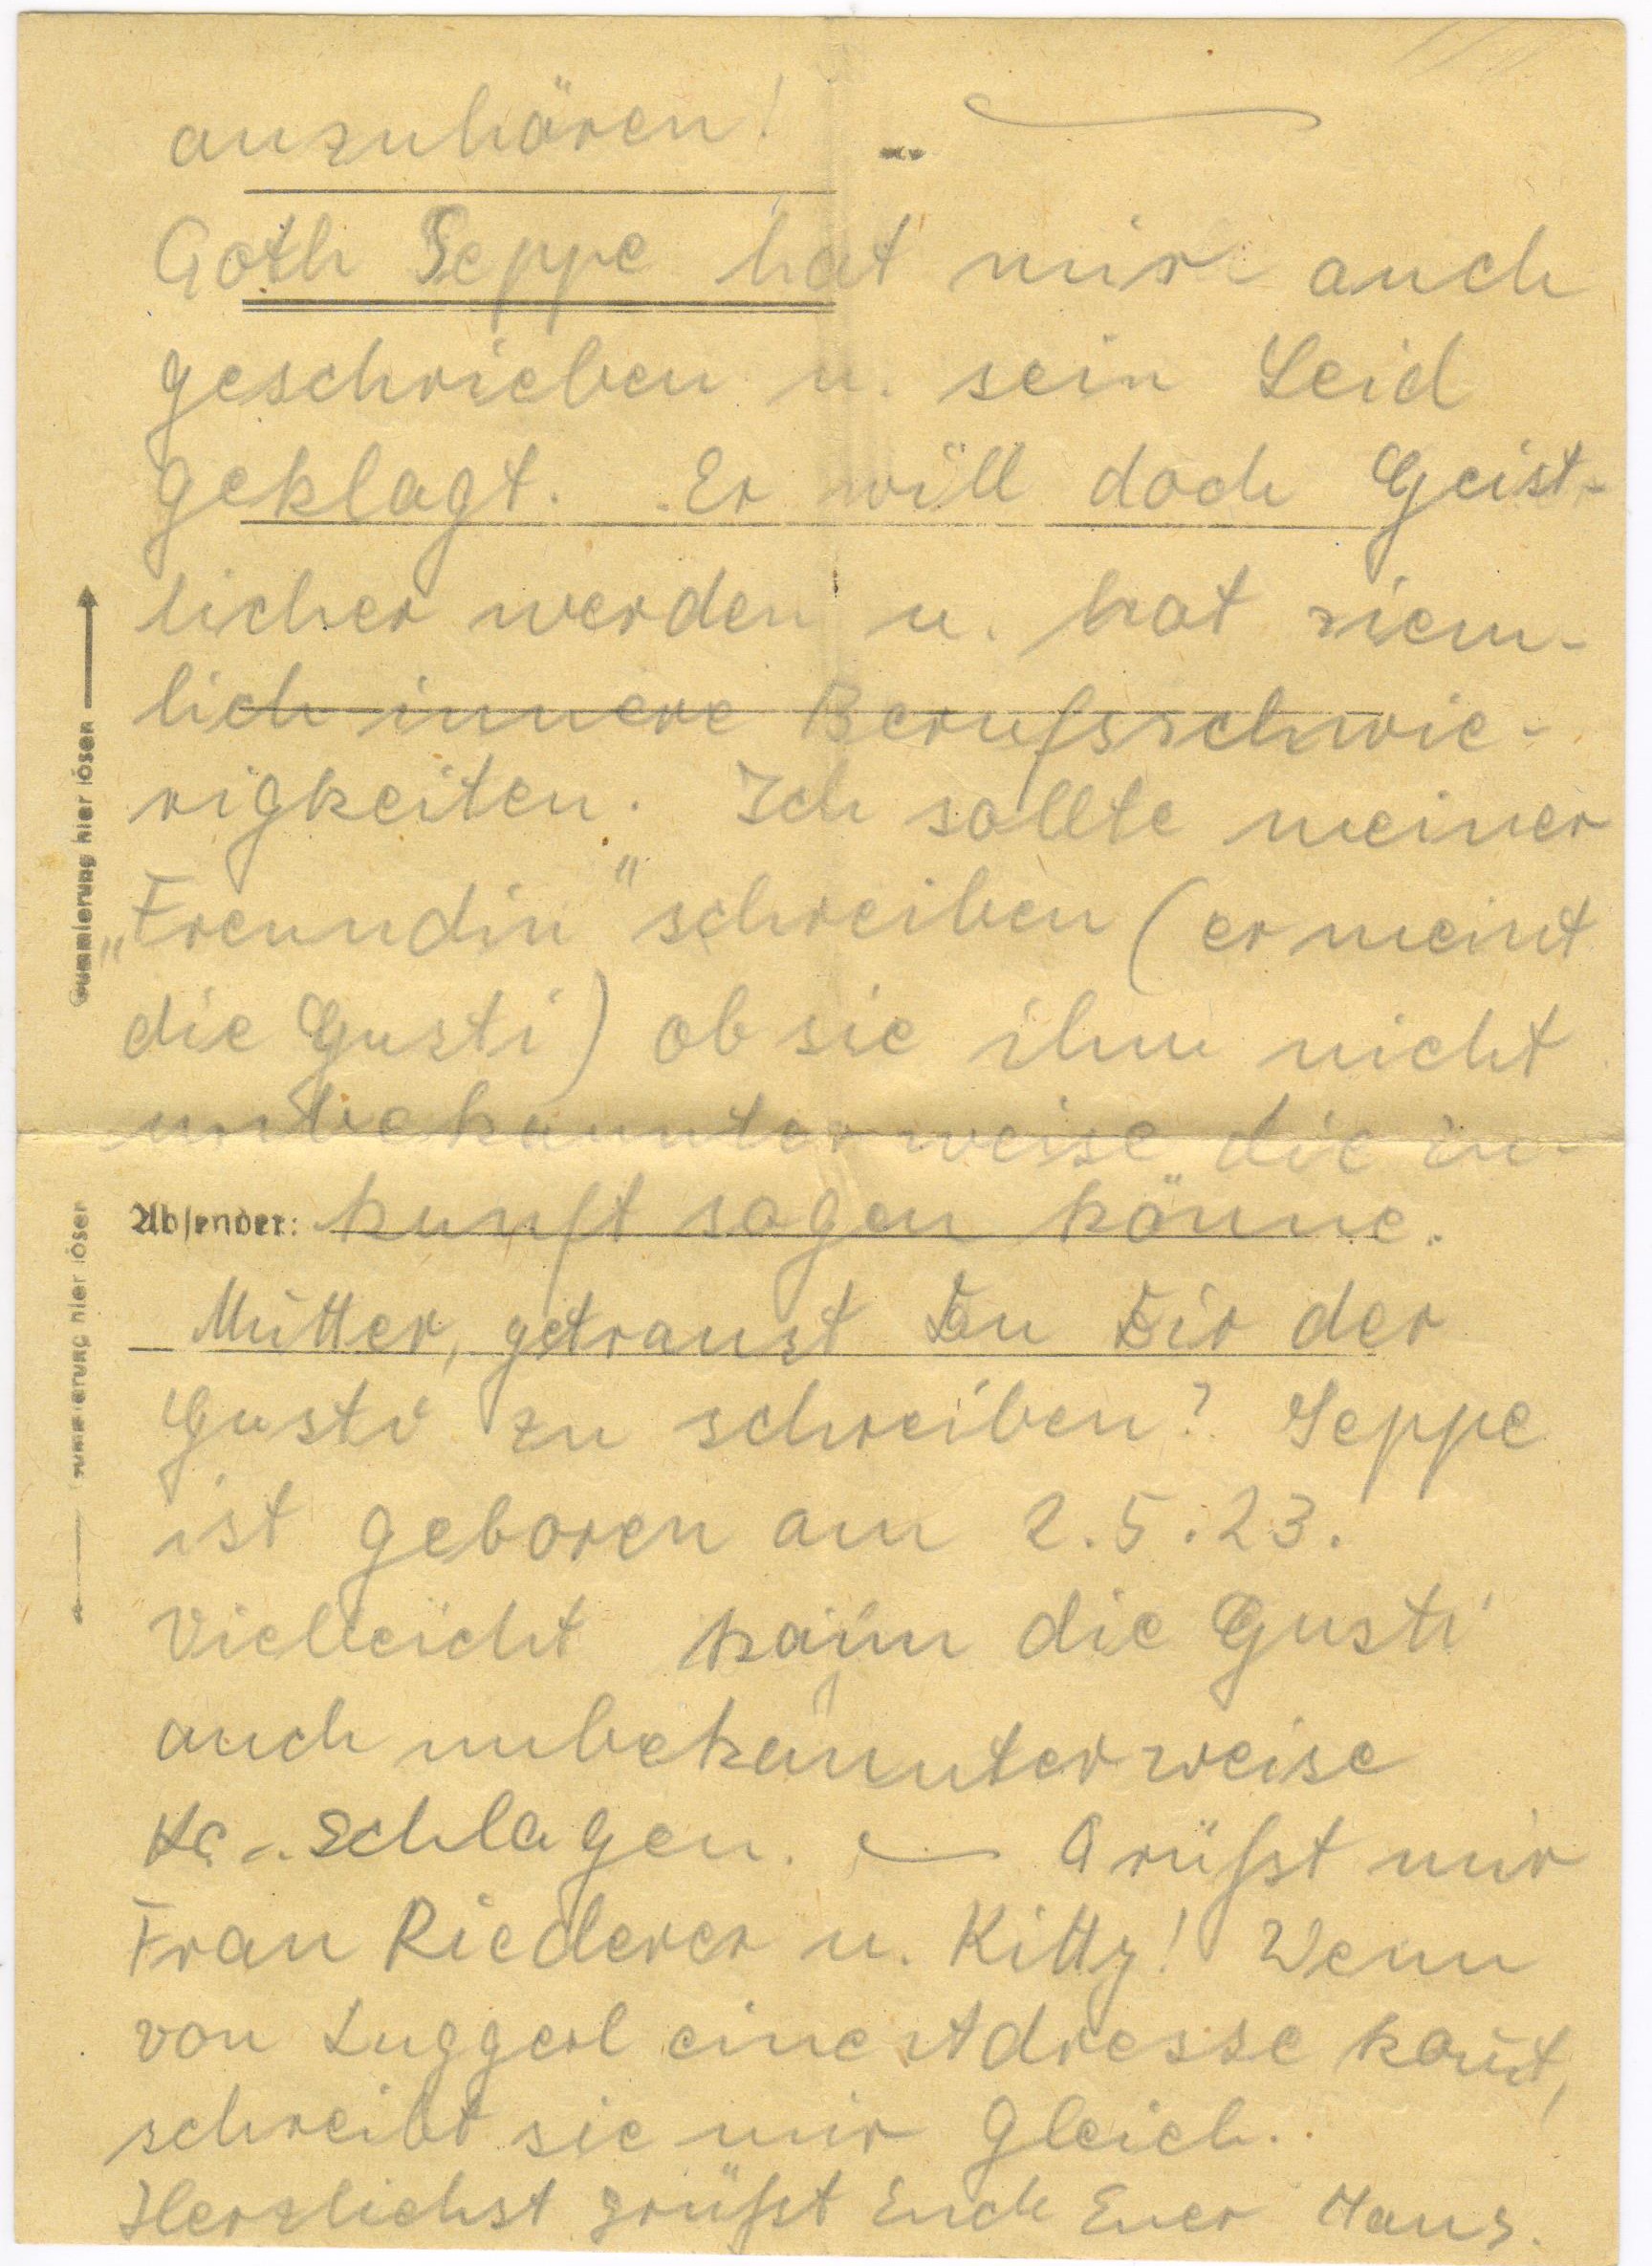 anzuhören!
Goth Seppe hat mir auch
geschrieben u. sein Leid
geklagt. Er will doch Geist-
licher werden u. hat ziem-
lich innere Berufsschwie-
rigkeiten. Ich sollte meiner
„Freundin" schreiben (er meint
die Gusti) ob sie ihm nicht
unbekannterweise die Zu-
Absender: kunft sagen könne.
Mutter, getraust Du Dir der
Gusti zu schreiben? Seppe
ist geboren am 2.5.23.
Vielleicht kann die Gusti
auch unbekannterweise
schlagen. — Grüßt mir
Frau Riederer u. Kitty! Wenn
von Luggerl eine Adresse komt,
schreibt sie mir gleich.
Herzlichst grüßt Euch Euer Hans.
Gummierung hier lösen
Gummierung hier lösen